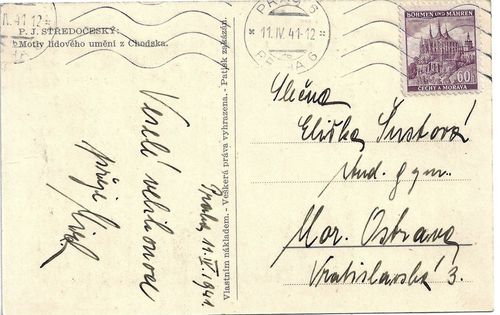 P. J. STŘEDOČESKÝ:
Motiv lidového umění z Chodska.
IV. 41-12
PRAG 6
* 11. IV. 41-12 *
PRAHA 6
BÖHMEN UND MÄHREN
60
ČECHY A MORAVA
Veselé velikonoce
přeje
Praha 11.IV.1941
Vlastním nákladem. - Veškerá práva vyhrazena. - Patisk zakázán.
Slečna
Eliška Šustová
stud. gym.
Mor. Ostrava
Vratislavská 3.